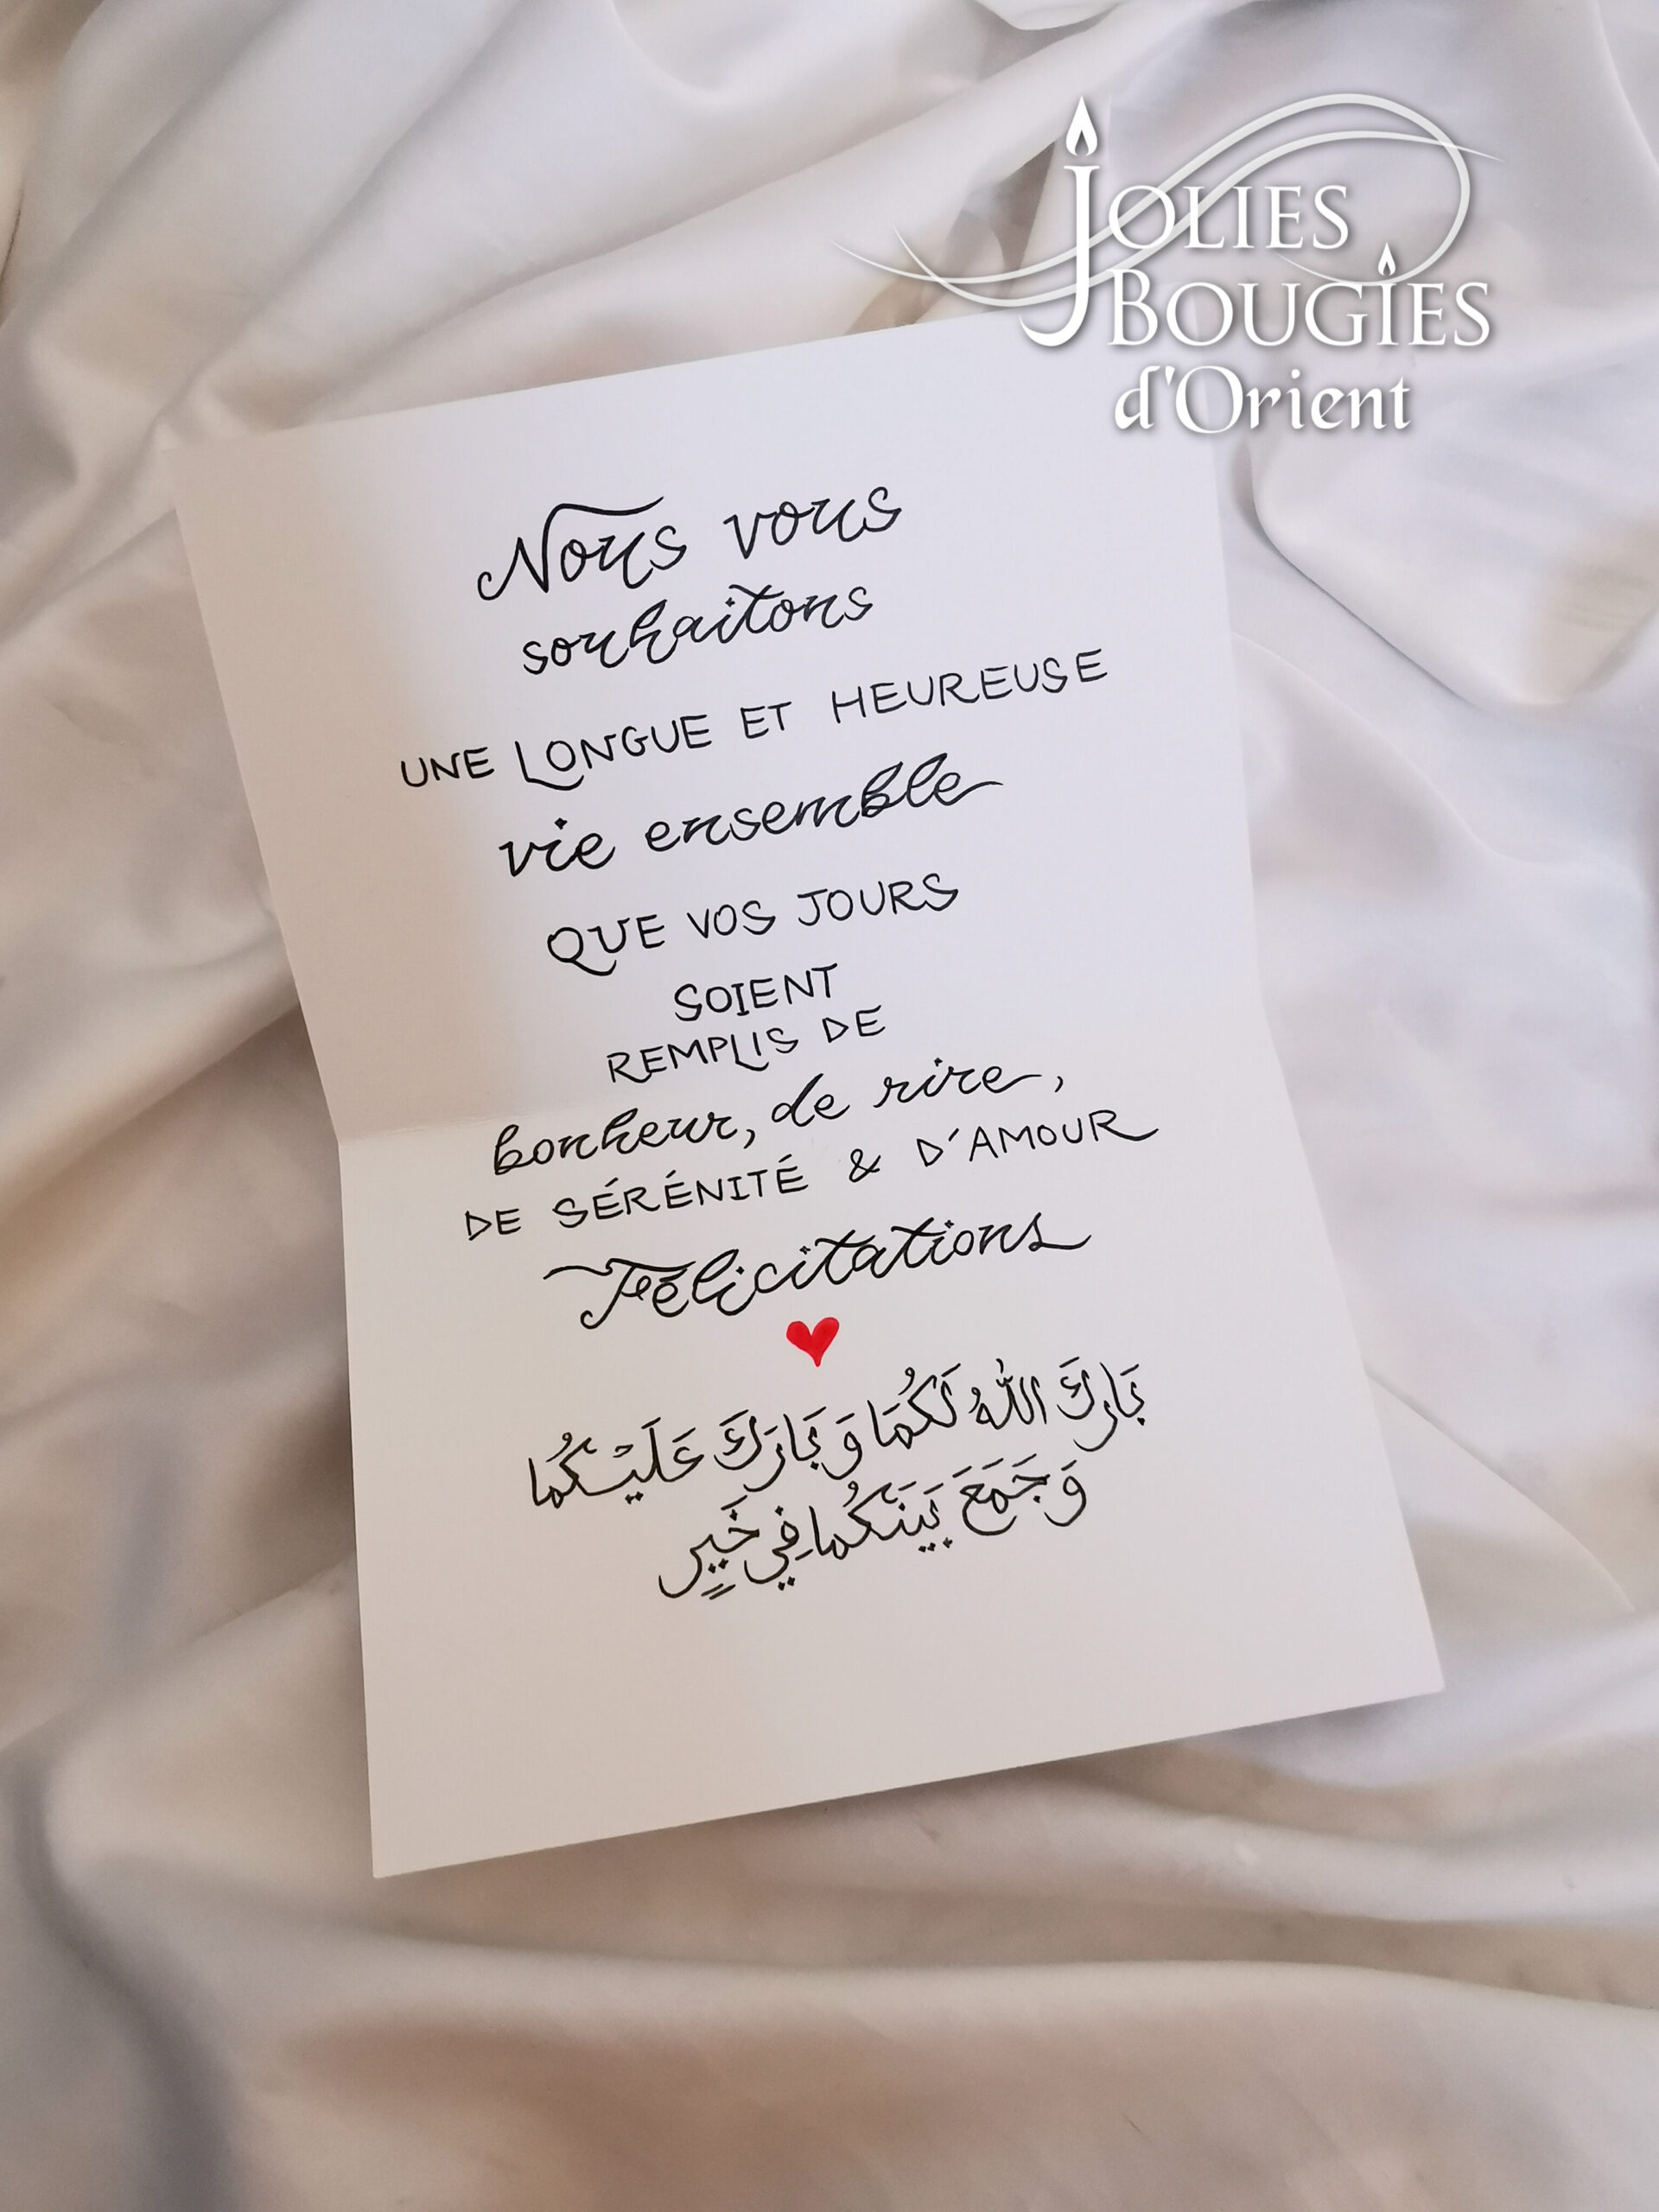 JOLIES
BOUGIES
d'Orient
Nous vous
souhaitons
UNE LONGUE ET HEUREUSE
vie ensemble
QUE VOS JOURS
SOIENT
REMPLIS DE
bonheur, de rire,
DE SÉRÉNITÉ & D'AMOUR
Félicitations
بَارَكَ اللهُ لَكُمَا وَ بَارَكَ عَلَيْكُمَا
وَ جَمَعَ بَيْنَكُمَا فِي خَيرٍ